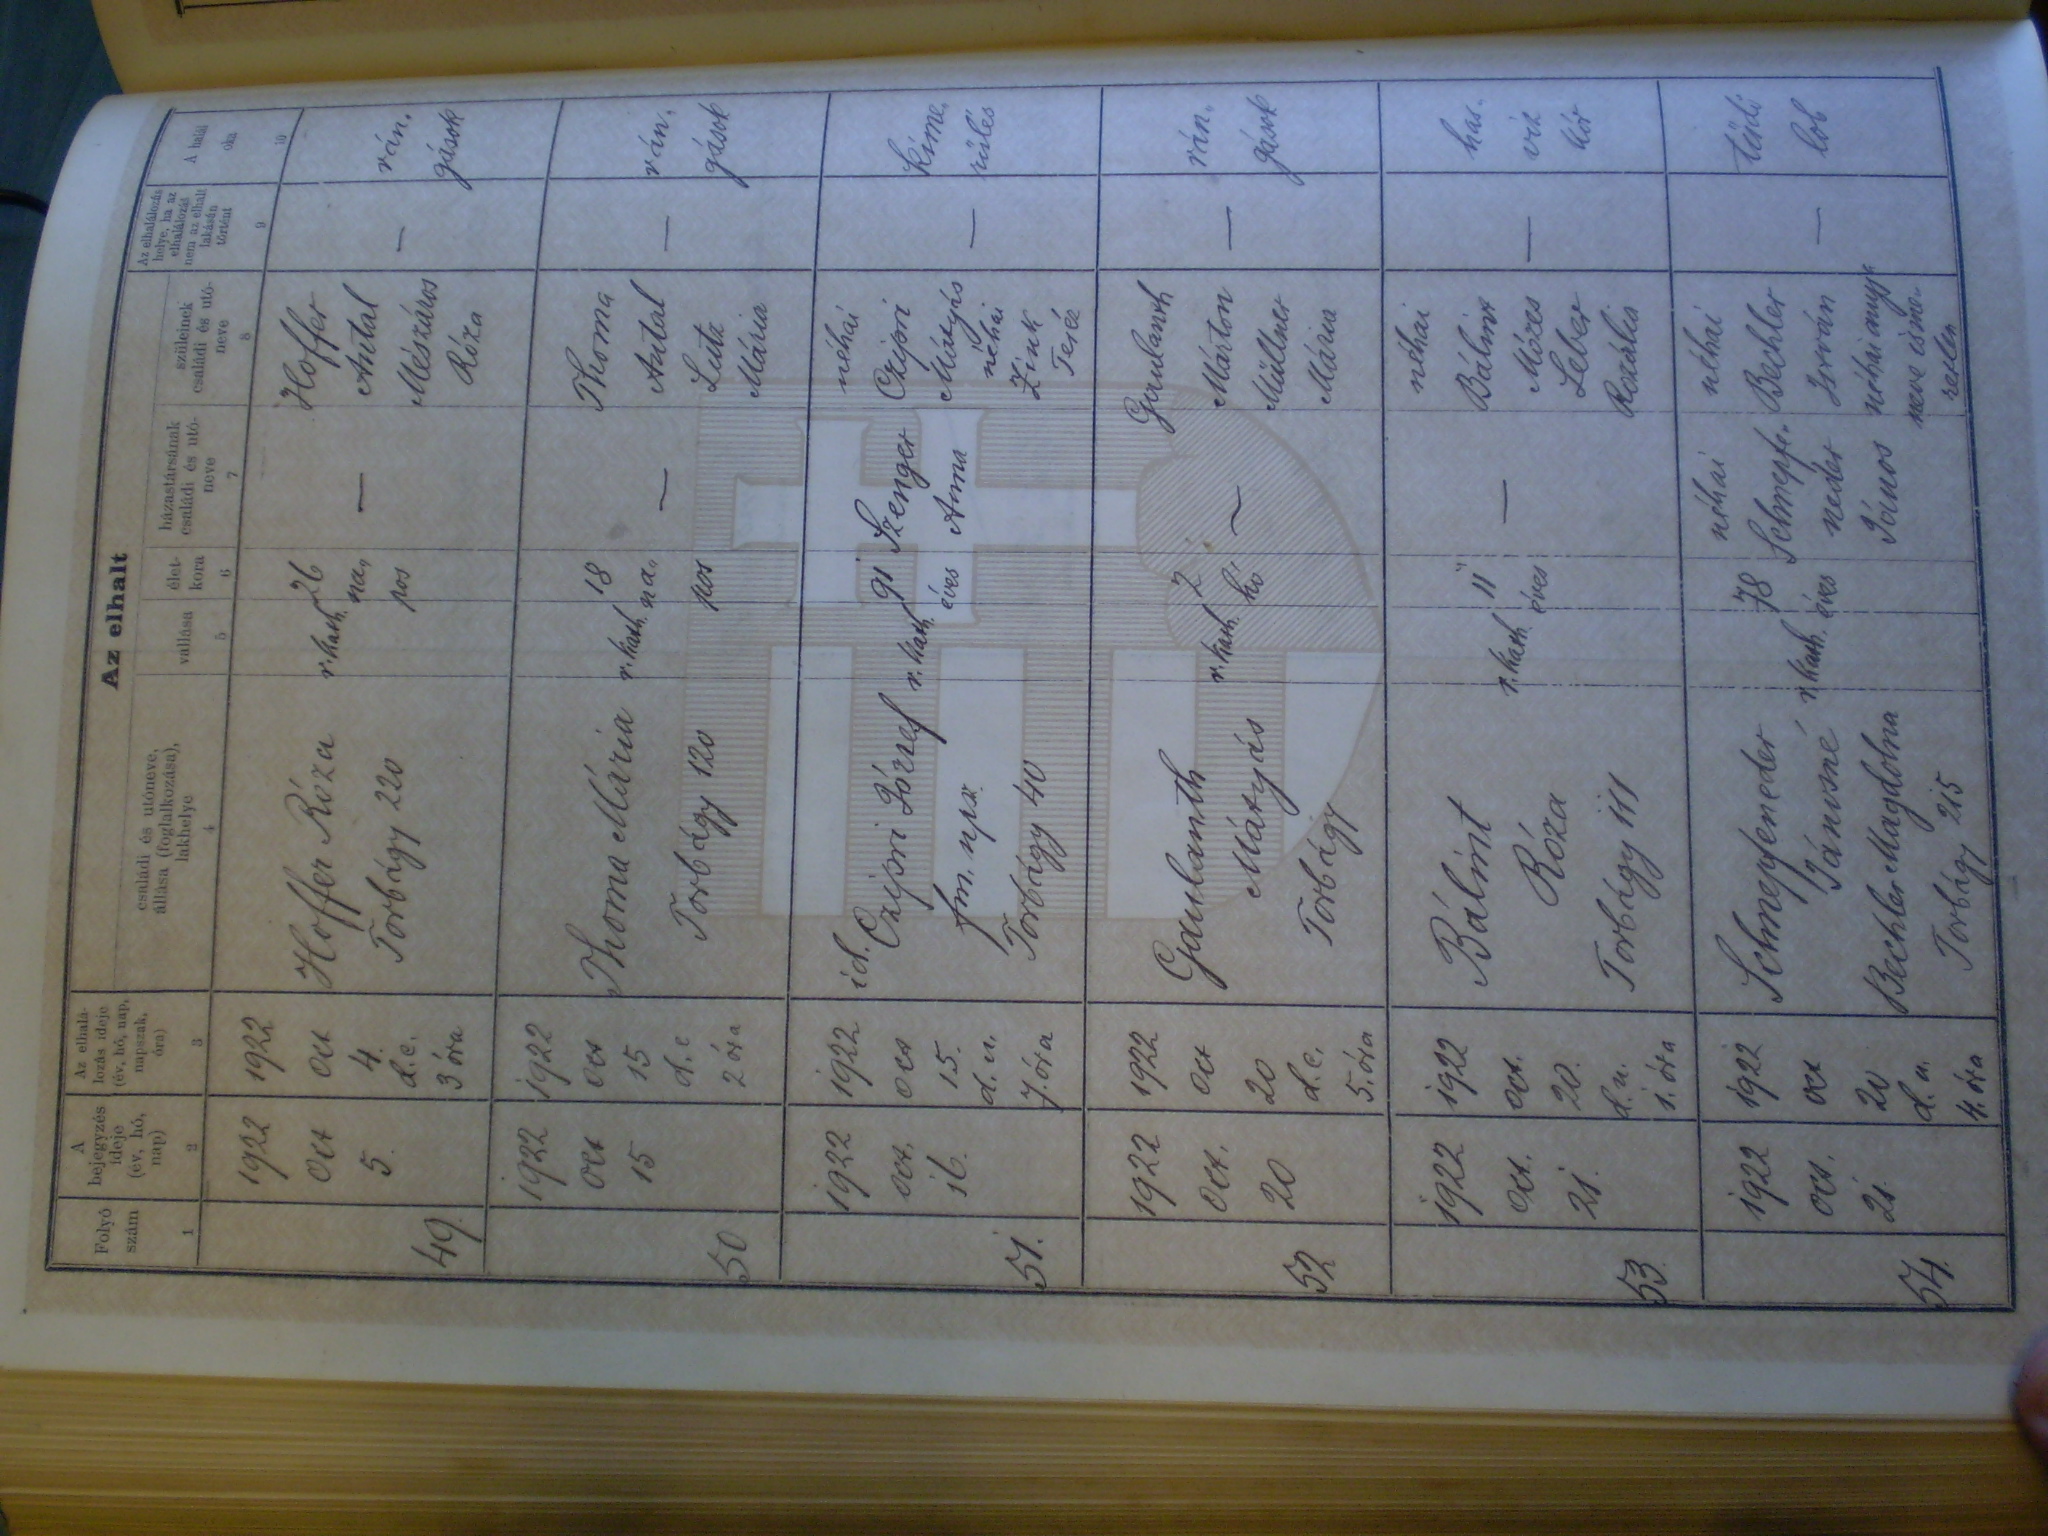 Az elhalt
Folyó
szám
A
bejegyzés
ideje
(év, hó,
nap)
Az elhalá-
lozás ideje
(év, hó, nap,
napszak,
óra)
családi és utóneve,
állása (foglalkozása),
lakhelye
vallása
élet-
kora
házastársának
családi és utó-
neve
szüleinek
családi és utó-
neve
Az elhalálozás
helye, ha az
elhalálozás
nem az elhalt
lakásán
történt
A halál
oka
1
2
3
4
5
6
7
8
9
10
49.
1922
Oct
5.
1922
Oct
4.
d.e.
3 óra
Hoffer Róza
Torbágy 220
r. kath.
26
na„
pos
—
Hoffer
Antal
Mészáros
Róza
—
rán„
gások
50
1922
Oct
15
1922
Oct
15
d.e
2 óra
Thoma Mária
Torbágy 120
r. kath.
18
na„
pos
—
Thoma
Antal
Lutz
Mária
—
rán„
gások
51.
1922
oct.
16.
1922
oct
15.
d.u.
7. óra
id.
Czipri József
fm. npsz.
Torbágy 40
r. kath.
91
éves
Szenger
Anna
néhai
Czipri
Mátyás
néhai
Zink
Teréz
—
kime„
rülés
52
1922
Oct.
20
1922
Oct
20
d.e.
5. óra
Gaulanth
Mátyás
Torbágy
r. kath.
2
hó
—
Gaulanth
Márton
Müllner
Mária
—
rán„
gások
53.
1922
Oct.
21.
1922
oct.
20.
d.u.
1. óra
Bálint
Róza
Torbágy 111
r. kath.
11
éves
—
néhai
Bálint
Mózes
Leber
Rozália
—
has„
víz
kór
54.
1922
oct.
21.
1922
oct
20
d.u.
4. óra
Schmepfeneder
Jánosné
Bechler Magdolna
Torbágy 215
r. kath.
78
éves
néhai
Schmepfe„
neder
János
néhai
Bechler
István
néhai anyja
neve isme„
retlen
—
tüdő
lob